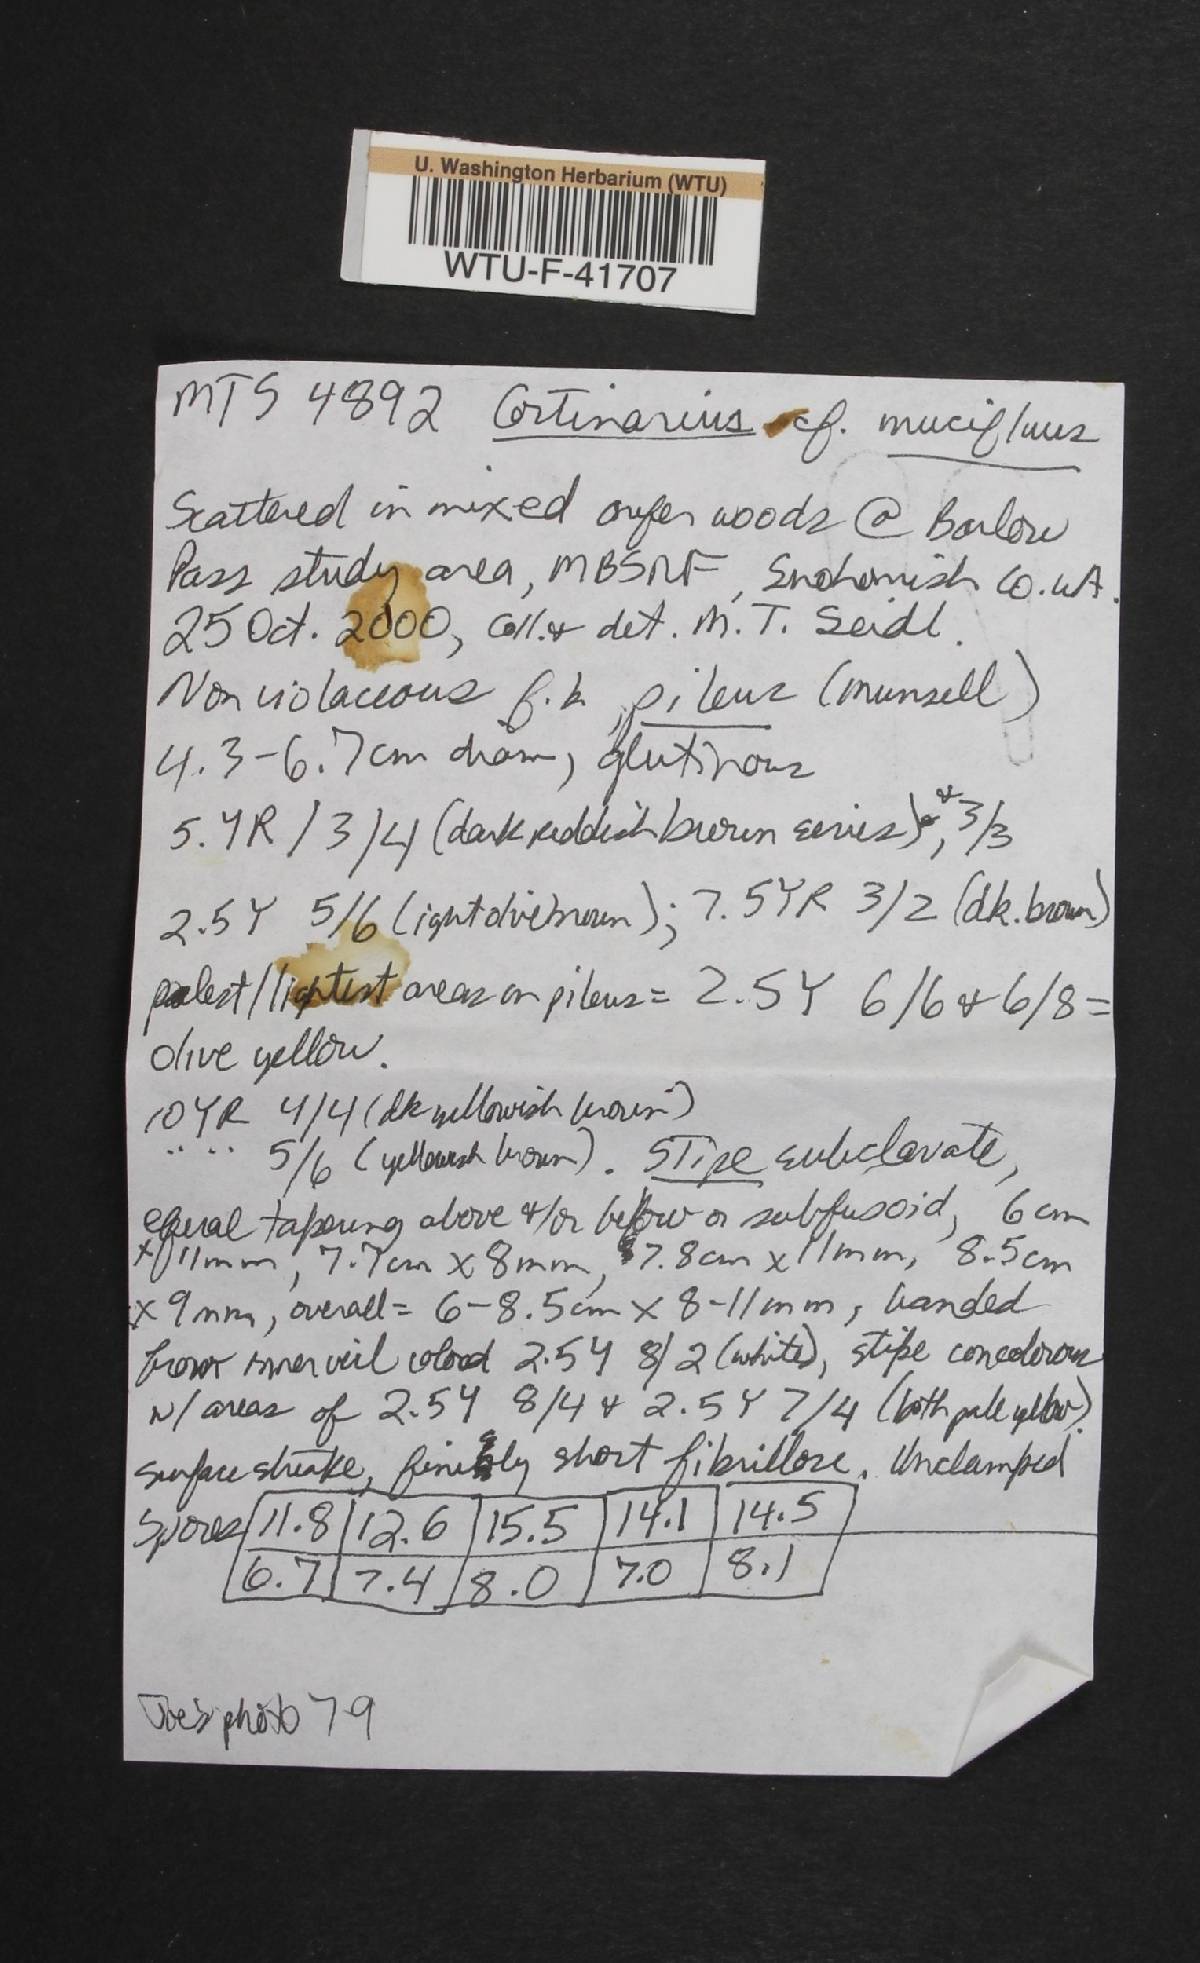 U. Washington Herbarium (WTU)
WTU-F-41707
MTS 4892 Cortinarius cf. mucifluus
Scattered in mixed conifer woods @ Barlow
Pass study area, MBSNF, Snohomish Co. WA.
25 Oct. 2000, Coll. & det. M. T. Seidl.
Non violaceous f.b., pileus (munsell)
4.3-6.7cm diam, glutinous
5.YR/3/4 (dark reddish brown series), & 3/3
2.5Y 5/6 (light olive brown); 7.5YR 3/2 (dk. brown)
palest/lightest areas on pileus = 2.5Y 6/6 & 6/8 =
olive yellow.
10YR 4/4 (dk yellowish brown)
" " 5/6 (yellowish brown). Stipe subclavate,
equal tapering above &/or below or subfusoid, 6cm
x 11mm, 7.7cm x 8mm, 7.8cm x 11mm, 8.5cm
x 9mm, overall = 6-8.5cm x 8-11mm, banded
from inner veil colored 2.5Y 8/2 (white), stipe concolorous
w/ areas of 2.5Y 8/4 & 2.5Y 7/4 (both pale yellow).
surface striate, finely short fibrillose. Unclamped
Spores 11.8 12.6 15.5 14.1 14.5
6.7 7.4 8.0 7.0 8.1
Joe's photo 79